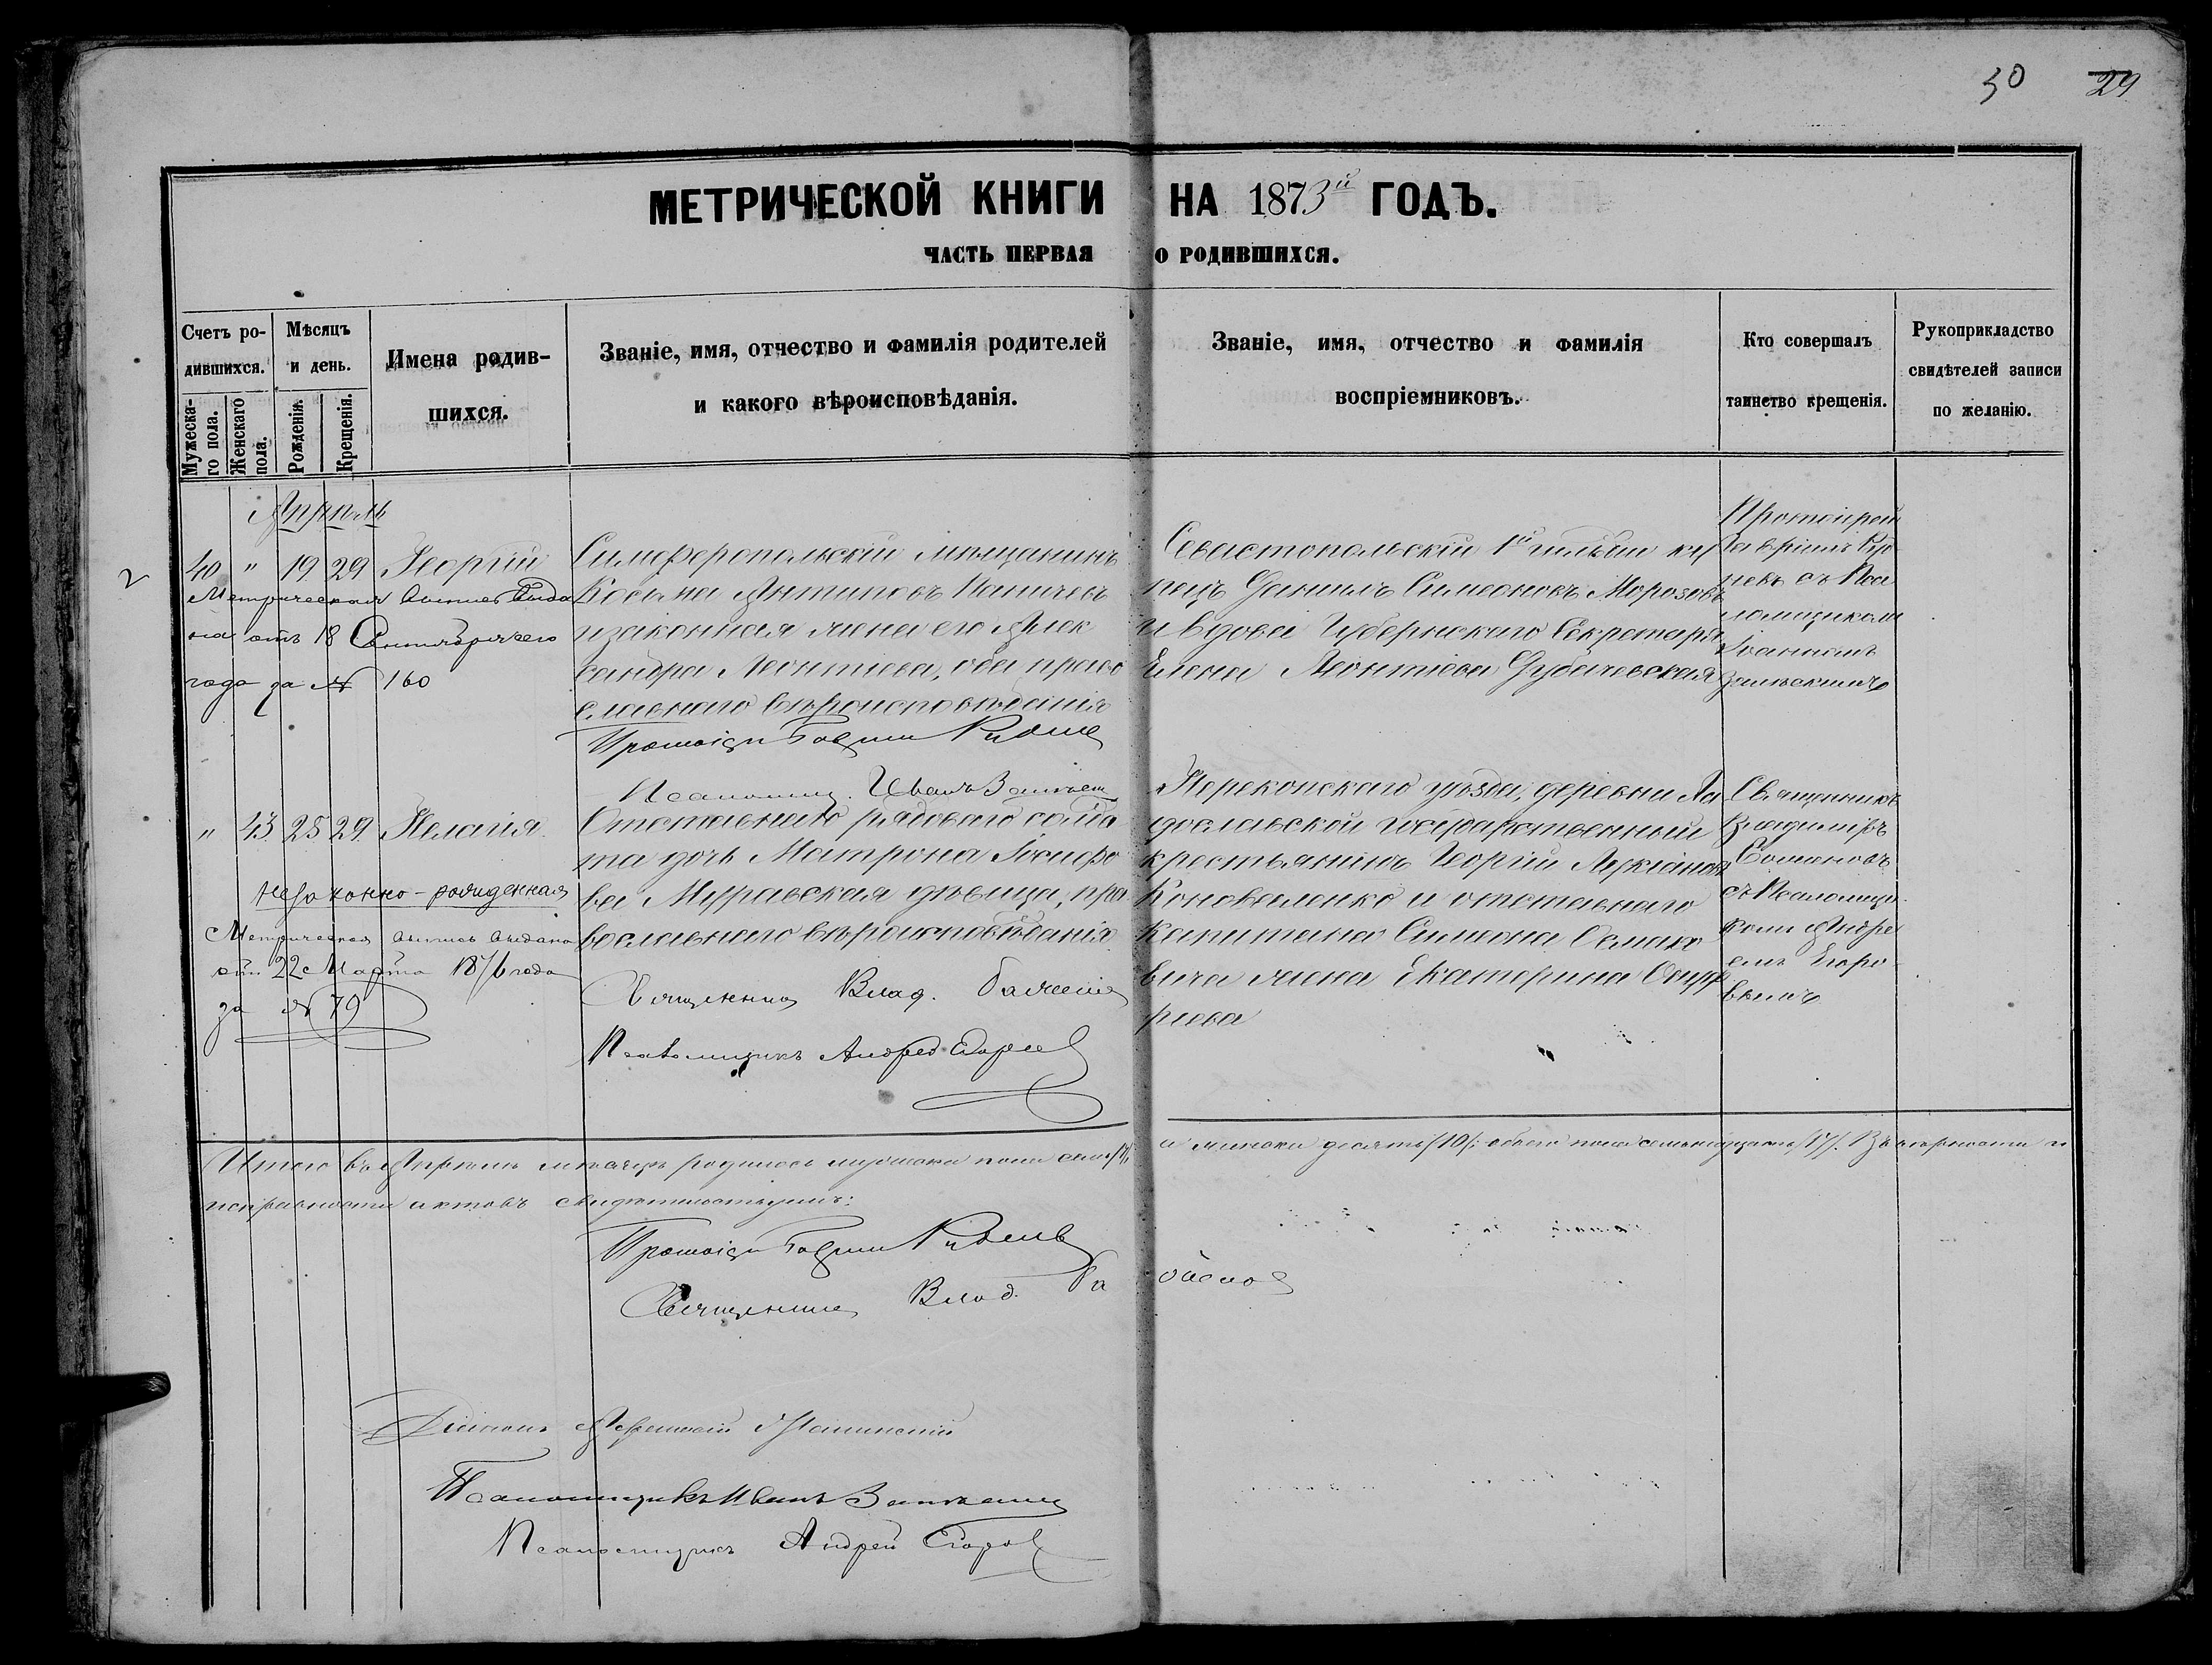 30 29
МЕТРИЧЕСКОЙ КНИГИ НА 1873й ГОДЪ.
ЧАСТЬ ПЕРВАЯ О РОДИВШИХСЯ.
Счетъ ро-
дившихся.
Мужеска-
го пола.
Женскаго
пола.
Мѣсяцъ
и день.
Рожденія.
Крещенія.
Имена родив-
шихся.
Званіе, имя, отчество и фамилія родителей
и какого вѣроисповѣданія.
Званіе, имя, отчество и фамилія
воспріемниковъ.
Кто совершалъ
таинство крещенія.
Рукоприкладство
свидѣтелей записи
по желанію.
Апрѣль
2
40 " 19 29 Георгій
Метрическая выпись выда
на отъ 18 Сентября сего
года за № 160
Симферопольскій мѣщанинъ
Косьма Антиповъ
и законная жена его Алек
сандра Леонтіева, оба право
славнаго вѣроисповѣданія
Протоіерей Гавріилъ
Псаломщ. Иванъ
Севастопольскій 1й гильдіи ку
пецъ Даніилъ Симеоновъ Морозовъ
и вдова Губернскаго Секретаря
Елена Леонтіева
Протоіерей
Гавріилъ
съ Пса
ломщикомъ
Іоанномъ
" 43 25 29 Пелагія
незаконно-рожденная
Метрическая выпись выдана
отъ 22 Марта 1876 года
за № 79
Отставнаго рядоваго солда
та дочь Матрона Іосифо
ва Муравская дѣвица, пра
вославнаго вѣроисповѣданія
Священникъ Влад.
Псаломщикъ Андрей Егоровъ
Перекопскаго уѣзда, деревни
государственный
крестьянинъ Георгій Лукіановъ
Коноваленко и отставнаго
Капитана Симеона
вича жена Екатерина Онуф
ріева
Священникъ
Владиміръ
съ Псаломщи
комъ Андре
емъ Егоро
вымъ
Итого въ Апрѣлѣ мѣсяцѣ родилось мужеска пола семь /7/, и женска десять /10/; обоего пола семьнадцать /17/. Въ вѣрности и
исправности актовъ свидѣтельствуемъ:
Протоіерей Гавріилъ
Священникъ Влад.
Діаконъ
Псаломщикъ Иванъ
Псаломщикъ Андрей Егоровъ